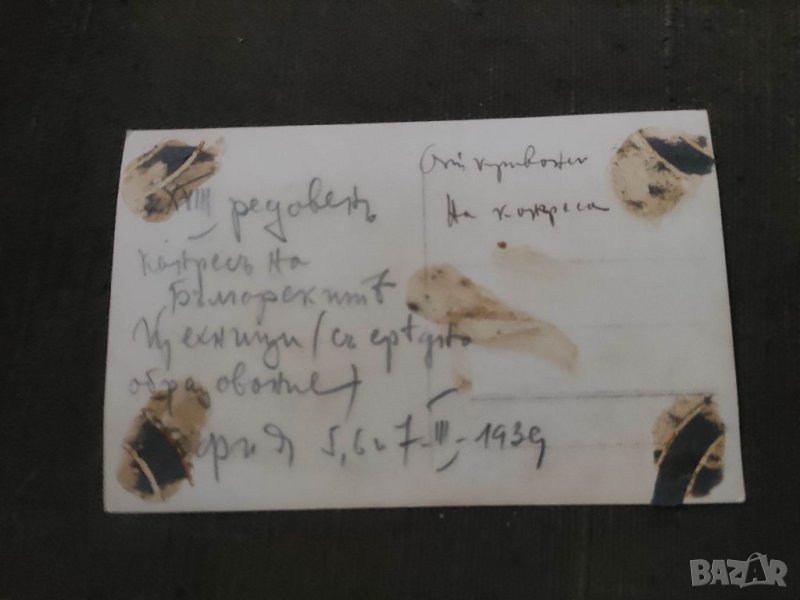 XVIII редовенъ
конгресъ на
Българскитѣ
Техници (съ срѣдно
образование)
София 5, 6 и 7-III-1939
Откриване
на конгреса
BAZAR